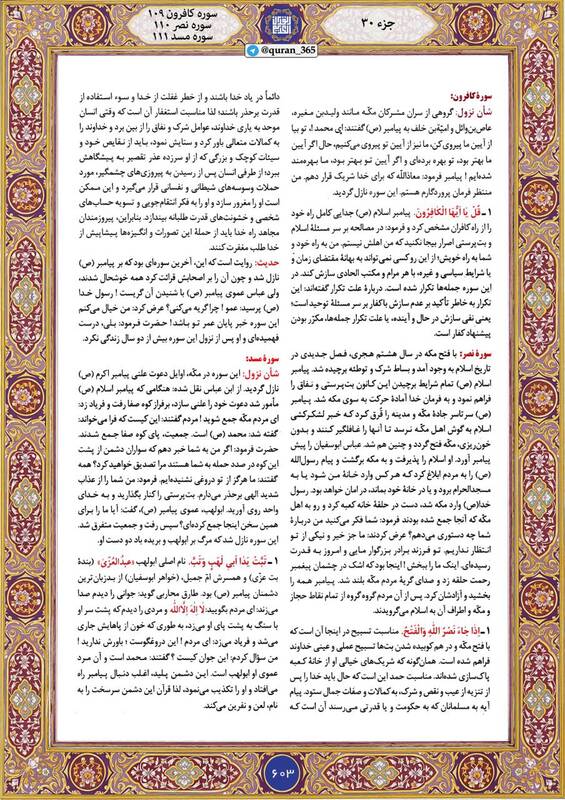 سوره کافرون ۱۰۹
سوره نصر ۱۱۰
سوره مسد ۱۱۱
جزء ۳۰
@quran_365
سورهٔ کافرون:
شأن نزول: گروهی از سران مشرکان مکّه مانند ولیدبن مغیره،
عاص‌بن‌وائل و امیّة‌بن خلف به پیامبر (ص) گفتند: ای محمد!، تو بیا
از آیین ما پیروی کن، ما نیز از آیین تو پیروی می‌کنیم، حال اگر آیین
ما بهتر بود، تو بهره برده‌ای و اگر آیین تو بهتر بود، ما بهره‌مند
شده‌ایم! پیامبر فرمود: معاذاللّه که برای خدا شریک قرار دهم. من
منتظر فرمان پروردگارم هستم. این سوره نازل گردید.
۱ـ قُلْ یَا اَیُّهَا الْکَافِرُونَ. پیامبر اسلام (ص) جدایی کامل راه خود
را از راه کافران مشخص کرد و فرمود: در مصالحه بر سر مسئلهٔ اسلام
و بت‌پرستی اصرار بیجا نکنید که من اهلش نیستم. من به راه خود و
شما به راه خویش؛ از این رو کسی نمی‌تواند به بهانهٔ مقتضای زمان و
یا شرایط سیاسی و غیره، با هر مرام و مکتب الحادی سازش کند. در
این سوره جمله‌ها تکرار شده است. دربارهٔ علت تکرار گفته‌اند: این
تکرار به خاطر تأکید بر عدم سازش با کفار بر سر مسئلهٔ توحید است؛
یعنی نفی سازش در حال و آینده، یا علت تکرار جمله‌ها، مکرّر بودن
پیشنهاد کفار است.
سورهٔ نصر: با فتح مکه در سال هشتم هجری، فصل جدیدی در
تاریخ اسلام به وجود آمد و بساط شرک و توطئه برچیده شد. پیامبر
اسلام (ص) تمام شرایط برچیدن این کانون بت‌پرستی و نفاق را
فراهم نمود و به فرمان خدا آمادهٔ حرکت به سوی مکه شد. پیامبر
(ص) سرتاسر جادهٔ مکه و مدینه را قُرق کرد که خبر لشکرکشی
اسلام به گوش اهل مکّه نرسد تا آنها را غافلگیر کنند و بدون
خون‌ریزی، مکّه فتح گردد و چنین هم شد. عباس ابوسفیان را پیش
پیامبر آورد. او اسلام را پذیرفت و به مکه برگشت و پیام رسول‌الله
(ص) را به مردم ابلاغ کرد که هر کس وارد خانهٔ من شود یا به
مسجدالحرام برود و یا در خانهٔ خود بماند، در امان خواهد بود. رسول
خدا(ص) وارد مکه شد، دست در حلقهٔ خانه کعبه کرد و رو به اهل
مکّه که آنجا جمع شده بودند فرمود: شما فکر می‌کنید من دربارهٔ
شما چه دستوری می‌دهم؟ عرض کردند: ما جز خیر و نیکی از تو
انتظار نداریم. تو فرزند برادر بزرگوار مایی و امروز به قدرت
رسیده‌ای، اینک ما را ببخش! اینجا بود که اشک در چشمان پیغمبر
رحمت حلقه زد و صدای گریهٔ مردم مکّه بلند شد. پیامبر همه را
بخشید و آزادشان کرد. پس از آن مردم گروه گروه از تمام نقاط حجاز
و مکّه و اطراف آن به اسلام می‌گرویدند.
۱ـ اِذَا جَاءَ نَصْرُ اللّٰهِ وَالْفَتْحُ. مناسبت تسبیح در اینجا آن است که
با فتح مکّه و در هم کوبیده شدن بت‌ها تسبیح عملی و عینی خداوند
فراهم شده است. همان‌گونه که شریک‌های خیالی او از خانهٔ کعبه
پاک‌سازی شده‌اند. مناسبت حمد این است که حال باید خدا را پس
از تنزیه از عیب و نقص و شرک، به کمالات و صفات جمال ستود. پیام
آیه به مسلمانان که به حکومت و یا قدرتی می‌رسند آن است که
دائماً در یاد خدا باشند و از خطر غفلت از خدا و سوء استفاده از
قدرت برحذر باشند؛ لذا مناسبت استغفار آن است که وقتی انسان
موحد به یاری خداوند، عوامل شرک و نفاق را از بین برد و خداوند را
به کمالات متعالی باور کرد و ستایش نمود، باید از نقایص خود و
سیئات کوچک و بزرگی که از او سرزده عذر تقصیر به پیشگاهش
ببرد؛ از طرفی انسان پس از رسیدن به پیروزی‌های چشمگیر، مورد
حملات وسوسه‌های شیطانی و نفسانی قرار می‌گیرد و این ممکن
است او را مغرور سازد و او را به فکر انتقام‌جویی و تسویه حساب‌های
شخصی و خشونت‌های قدرت طلبانه بیندازد. بنابراین، پیروزمندان
مجاهد راه خدا باید از حملهٔ این تصورات و انگیزه‌ها پیشاپیش از
خدا طلب مغفرت کنند.
حدیث: روایت است که این، آخرین سوره‌ای بود که بر پیامبر (ص)
نازل شد و چون آن را بر اصحابش قرائت کرد همه خوشحال شدند،
ولی عباس عموی پیامبر (ص) با شنیدن آن گریست! رسول خدا
(ص) پرسید: عمو! چرا گریه می‌کنی؟ عرض کرد: من خیال می‌کنم
این سوره خبر پایان عمر تو باشد! حضرت فرمود: بلی، درست
فهمیده‌ای و او پس از نزول این سوره بیش از دو سال زندگی نکرد.
سورهٔ مسد:
شأن نزول: این سوره در مکّه، اوایل دعوت علنی پیامبر اکرم (ص)
نازل گردید. از ابن عباس نقل شده: هنگامی که پیامبر اسلام (ص)
مأمور شد دعوت خود را علنی سازد، برفراز کوه صفا رفت و فریاد زد:
ای مردم مکّه جمع شوید! مردم گفتند: این کیست که فرا می‌خواند؛
گفته شد: محمد (ص) است. جمعیت، پای کوه صفا جمع شدند.
حضرت فرمود: اگر من به شما خبر دهم که سواران دشمن از پشت
این کوه در صدد حمله به شما هستند مرا تصدیق خواهید کرد؟ همه
گفتند: ما هرگز از تو دروغی نشنیده‌ایم. فرمود: من شما را از عذاب
شدید الهی برحذر می‌دارم. بت‌پرستی را کنار بگذارید و به خدای
واحد روی آورید. ابولهب، عموی پیامبر (ص)، گفت: آیا ما را برای
همین سخن اینجا جمع کرده‌ای؟ سپس رفت و جمعیت متفرق شد.
این سوره نازل شد که مرگ بر ابولهب و بریده باد دو دست او.
۱ـ تَبَّتْ یَدَا اَبی لَهَبٍ وَتَبَّ. نام اصلی ابولهب «عبدالعُزّی» (بندهٔ
بت عزّی) و همسرش امّ جمیل، (خواهر ابوسفیان) از بدزبان‌ترین
دشمنان پیامبر (ص) بود. طارق محاربی گوید: جوانی را دیدم صدا
می‌زند: ای مردم بگویید: لا اِلهَ اِلَّا اللّٰه و مردی را دیدم که پشت سر او
با سنگ به پشت پای او می‌زد، به طوری که خون از پاهایش جاری
می‌شد و فریاد می‌زد: ای مردم! این دروغگوست؛ باورش ندارید!
من سؤال کردم: این جوان کیست؟ گفتند: محمد است و آن مرد
عموی او ابولهب است. این دشمن پلید، اغلب دنبال پیامبر راه
می‌افتاد و او را تکذیب می‌نمود، لذا قرآن این دشمن سرسخت را به
نام، لعن و نفرین می‌کند.
۶۰۳